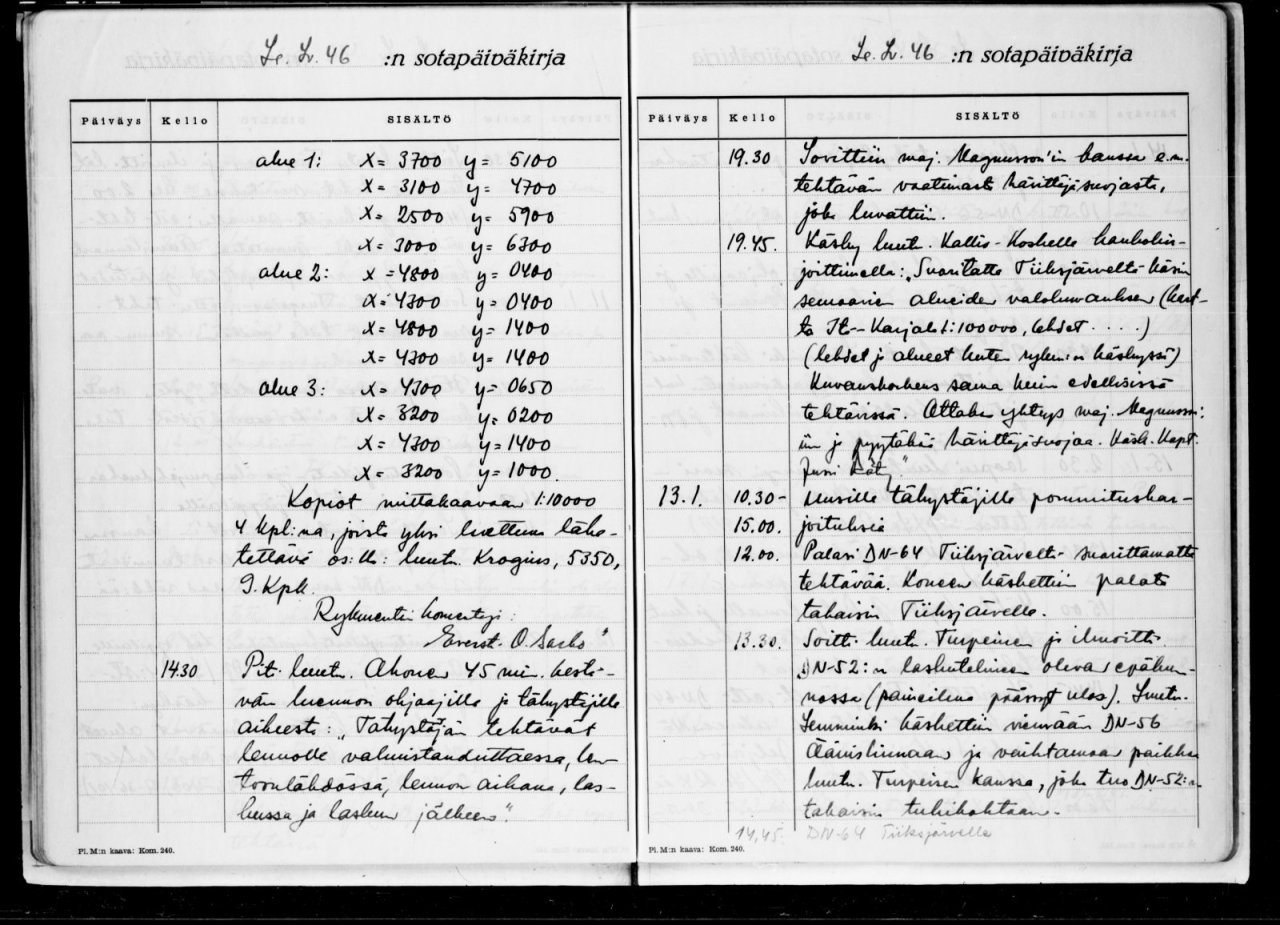 Le.Lv. 46 :n sotapäiväkirja
Päiväys Kello SISÄLTÖ
alue 1: X = 3700 y = 5100
X = 3100 y = 4700
X = 2500 y = 5900
X = 3000 y = 6300
alue 2: X = 4800 y = 0400
X = 4300 y = 0400
X = 4800 y = 1400
X = 4300 y = 1400
alue 3: X = 4300 y = 0650
X = 3200 y = 0200
X = 4300 y = 1400
X = 3200 y = 1000.
Kopiot mittakaavaan 1:10000
4 kpl:na, joista yksi luettuna lähe-
tettävä os:lla: luutn. Krogius, 5350,
9. Kpk.
Rykmentin komentaja:
Everst. O. Sarko"
14.30 Piti luutn. Ahonen 45 min. kestä-
vän luennon ohjaajille ja tähystäjille
aiheesta: „Tähystäjän tehtävät
lennolle valmistauduttaessa, len-
toonlähdössä, lennon aikana, las-
kussa ja laskun jälkeen".
Pl. M:n kaava: Kom. 240.
Le.Lv. 46 :n sotapäiväkirja
Päiväys Kello SISÄLTÖ
19.30 Sovittiin maj. Magnusson'in kanssa e.m.
tehtävän vaatimasta hävittäjäsuojasta,
joka luvattiin.
19.45. Käsky luutn. Kallio-Koskelle kaukokir-
joittimella: „Suorittakaa Tiiksjärveltä käsin
seuraavien alueiden valokuvauksen (kart-
ta It.-Karjala 1:100000, lehdet . . . . .)
(lehdet ja alueet kuten rykm:n käskyssä)
Kuvauskorkeus sama kuin edellisissä
tehtävissä. Ottakaa yhteys maj. Magnusson:
iin ja pyytäkää hävittäjäsuojaa. Käsk. Kapt.
13.1. 10.30- Uusille tähystäjille pommitushar-
15.00. joituksia
12.00. Palasi DN-64 Tiiksjärveltä suorittamatta
tehtävää. Koneen käskettiin palata
takaisin Tiiksjärvelle.
13.30. Soitti luutn. Turpeinen ja ilmoitti
DN-52:n laskutelineen olevan epäkun-
nossa (paineilma päässyt ulos). Luutn.
Lemminki käskettiin viemään DN-56
Äänislinnaan ja vaihtamaan paikkaa
luutn. Turpeisen kanssa, joka tuo DN-52:n
takaisin tukikohtaan.
14.45. DN-64 Tiiksjärvelle
Pl. M:n kaava: Kom. 240.